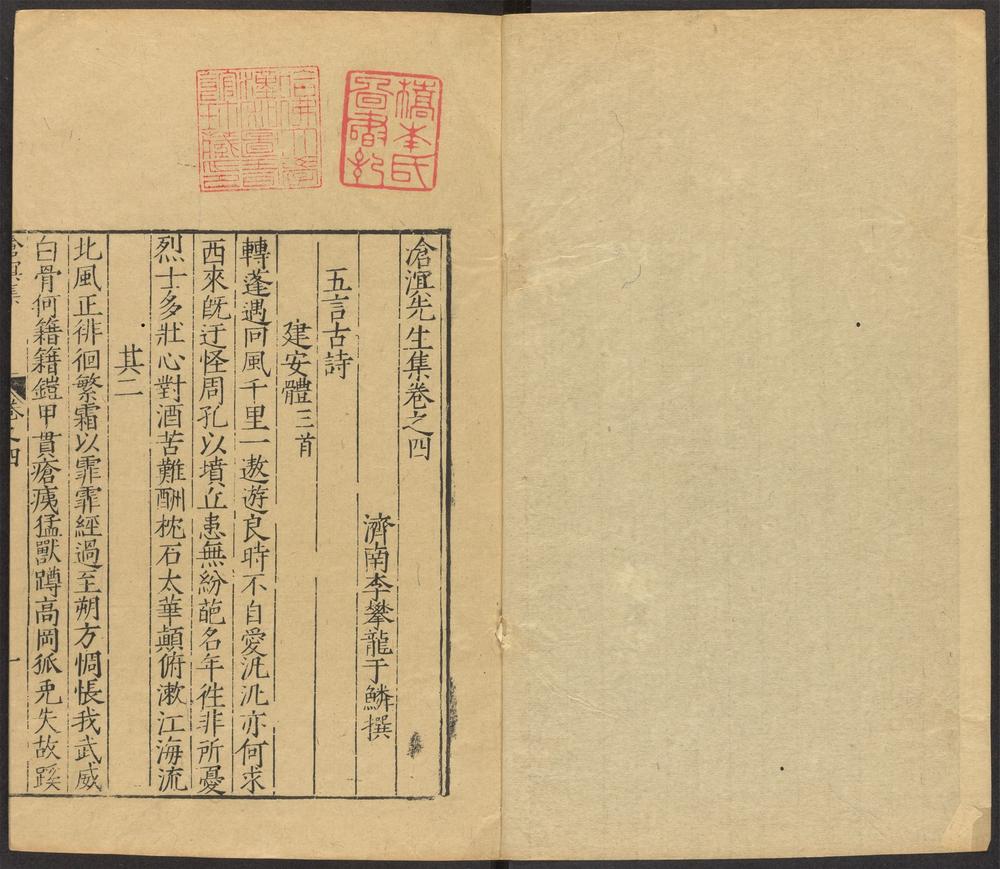 滄溟先生集卷之四
濟南李攀龍于鱗撰
五言古詩
建安體三首
轉蓬遇回風千里一遨遊良時不自愛汎汎亦何求
西來旣迂怪周孔以墳丘患無紛葩名年徃非所憂
烈士多壯心對酒苦難酬枕石太華顛俯漱江海流
其二
北風正徘徊繁霜以霏霏經過至朔方惆悵我武威
白骨何籍籍鎧甲貫瘡痍猛獸蹲高岡狐兎失故蹊
滄溟集
卷之四
一
橋本氏
哈佛大學
漢和圖書
館珍藏印